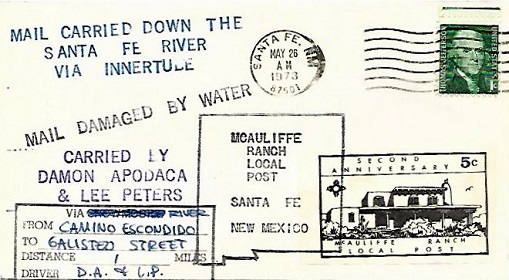 MAIL CARRIED DOWN THE
SANTA FE RIVER
VIA INNERTUBE
SANTA FE, NM
MAY 26
A M
1973
87501
UNITED STATES
MAIL DAMAGED BY WATER
CARRIED BY
DAMON APODACA
& LEE PETERS
VIA RIVER
FROM CAMINO ESCONDIDO
TO GALISTEO STREET
DISTANCE 1 MILES
DRIVER D.A. & L.P.
MCAULIFFE
RANCH
LOCAL
POST
SANTA FE
NEW MEXICO
SECOND
ANNIVERSARY 5c
MCAULIFFE RANCH
LOCAL POST